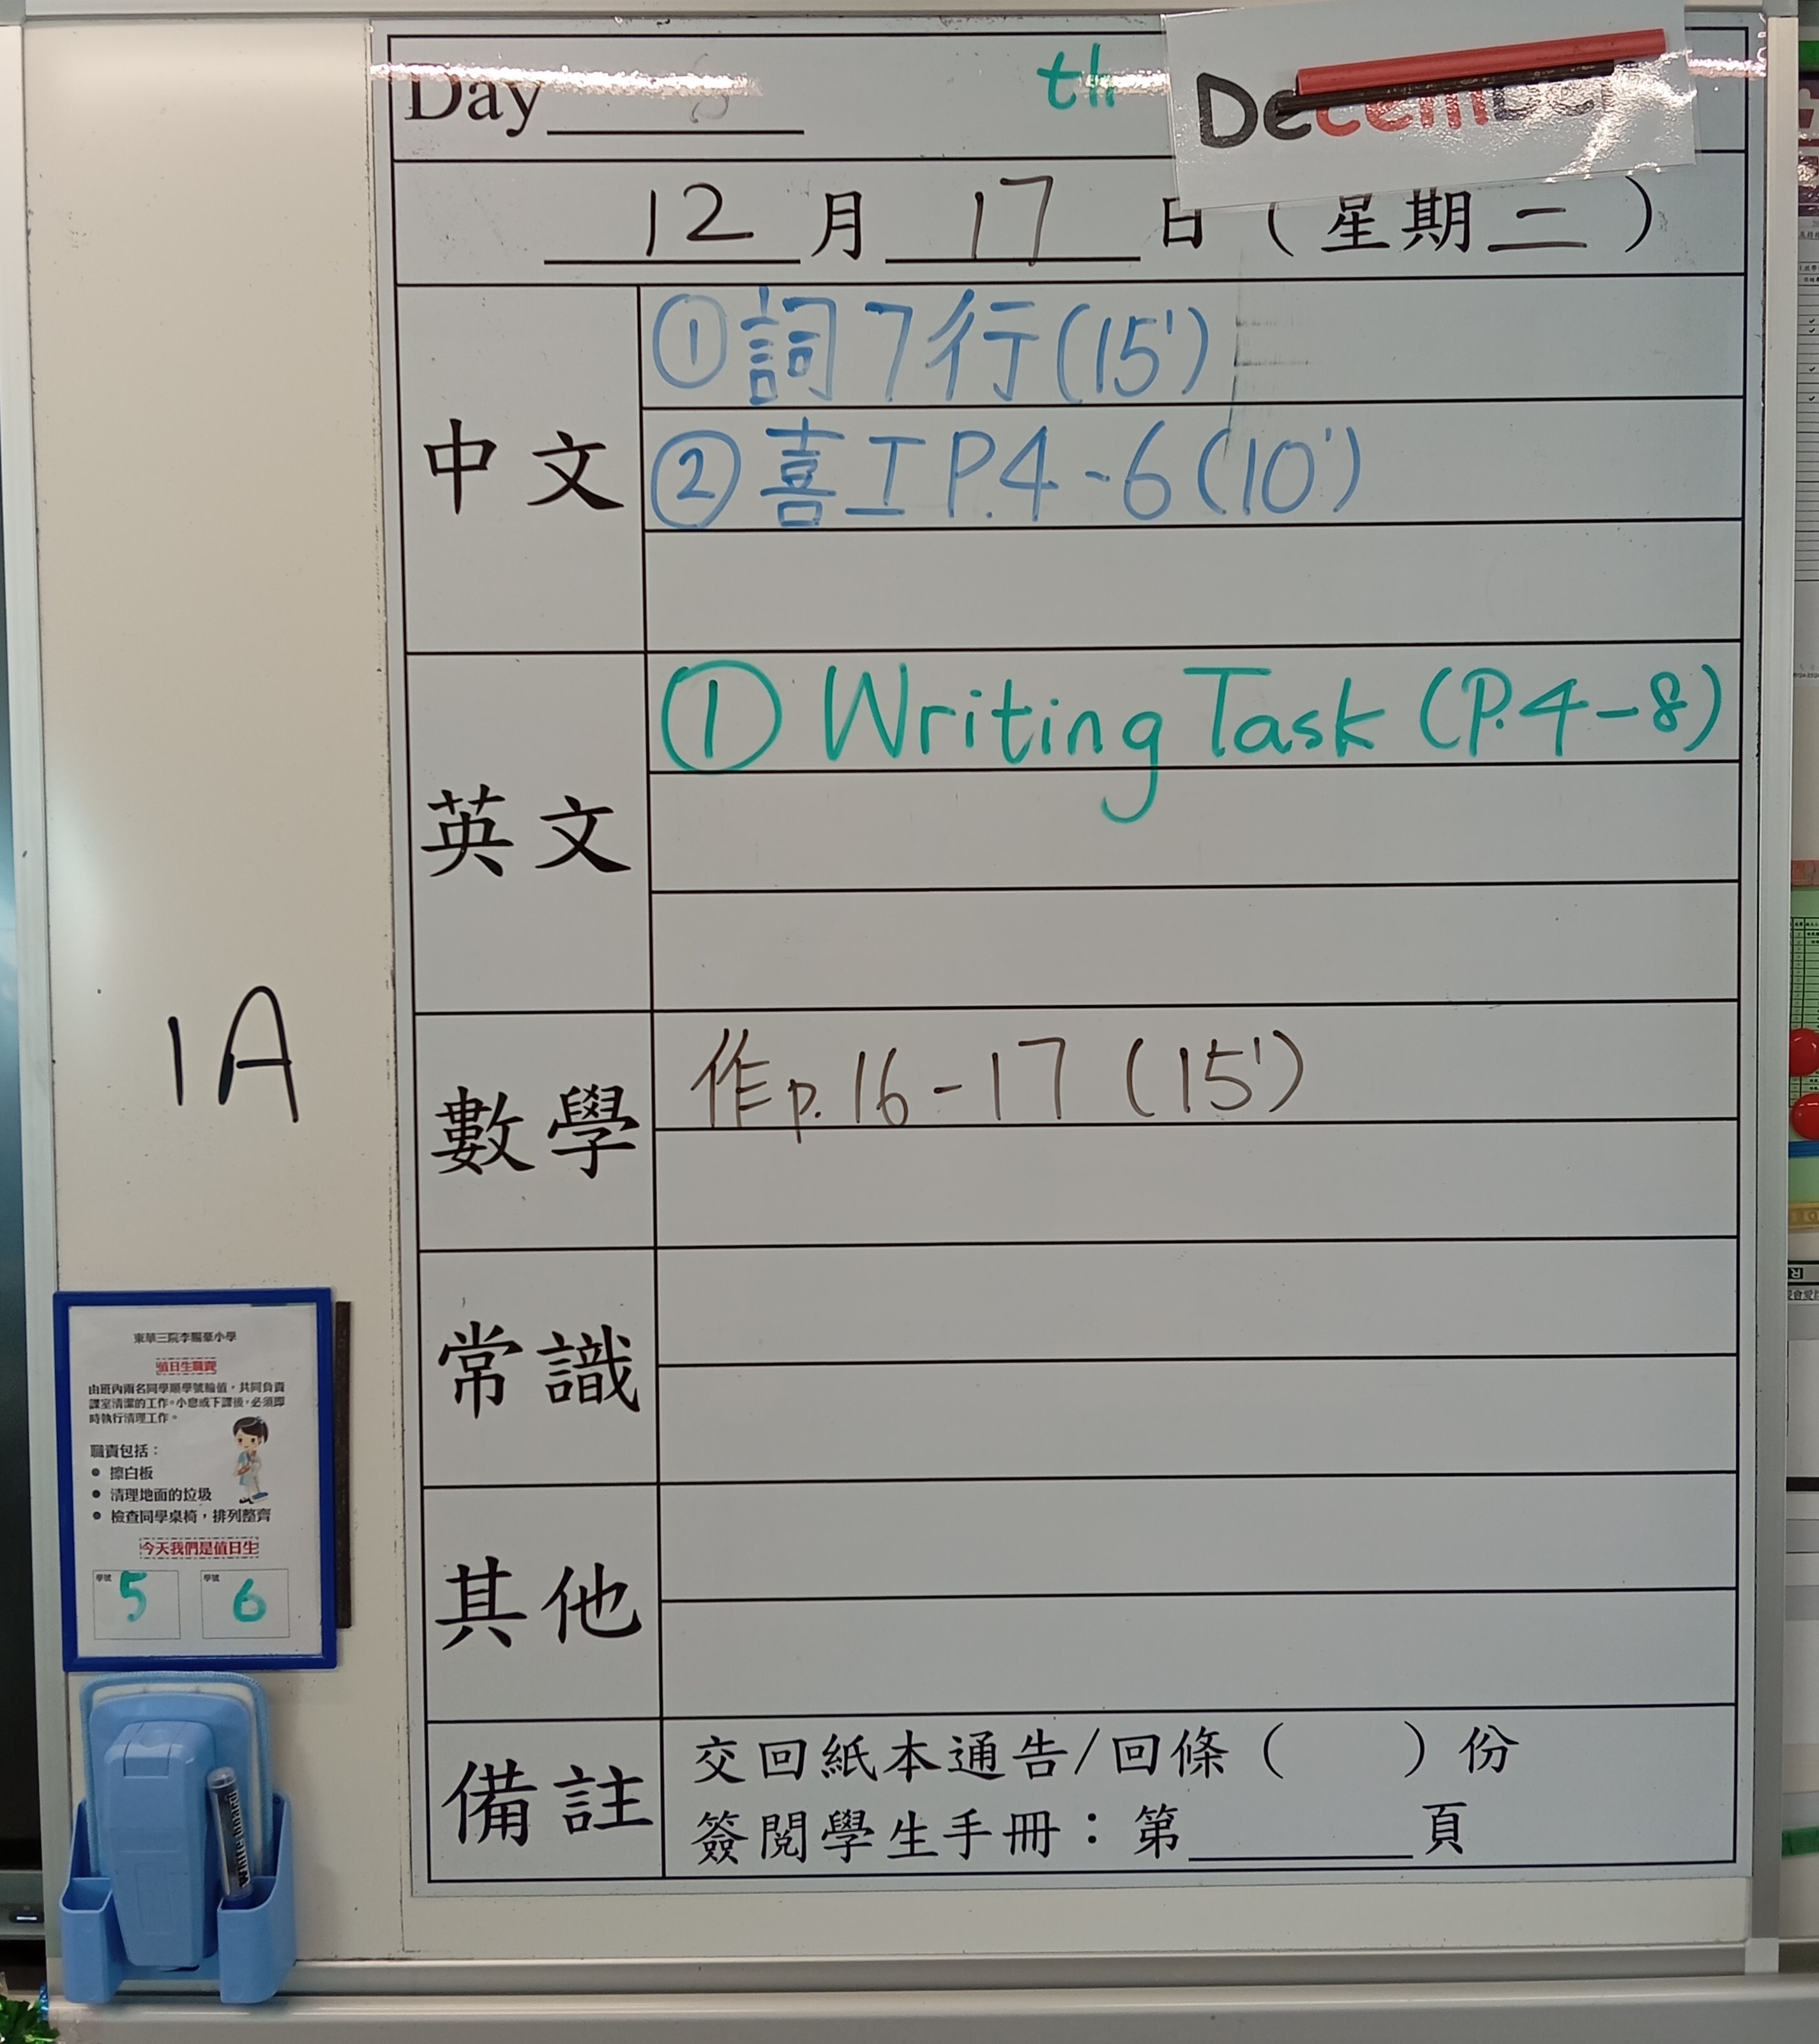 Day
th
December
12月17日(星期二)
中文
①詞7行(15')
②喜工P.4-6(10')
英文
①Writing Task (P.4-8)
數學
作p.16-17(15')
常識
其他
備註
交回紙本通告/回條(    )份
簽閱學生手冊：第______頁
1A
東華三院李賜豪小學
值日生職責
由班內兩名同學順學號輪值，共同負責
課室清潔的工作。小息或下課後，必須即
時執行清理工作。
職責包括：
• 擦白板
• 清理地面的垃圾
• 檢查同學桌椅，排列整齊
今天我們是值日生
學號 5 學號 6